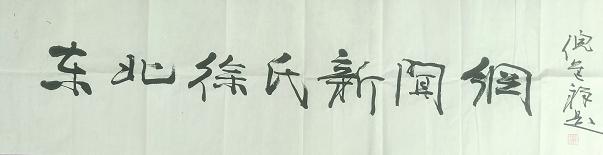 东北徐氏新闻網
倪金 题